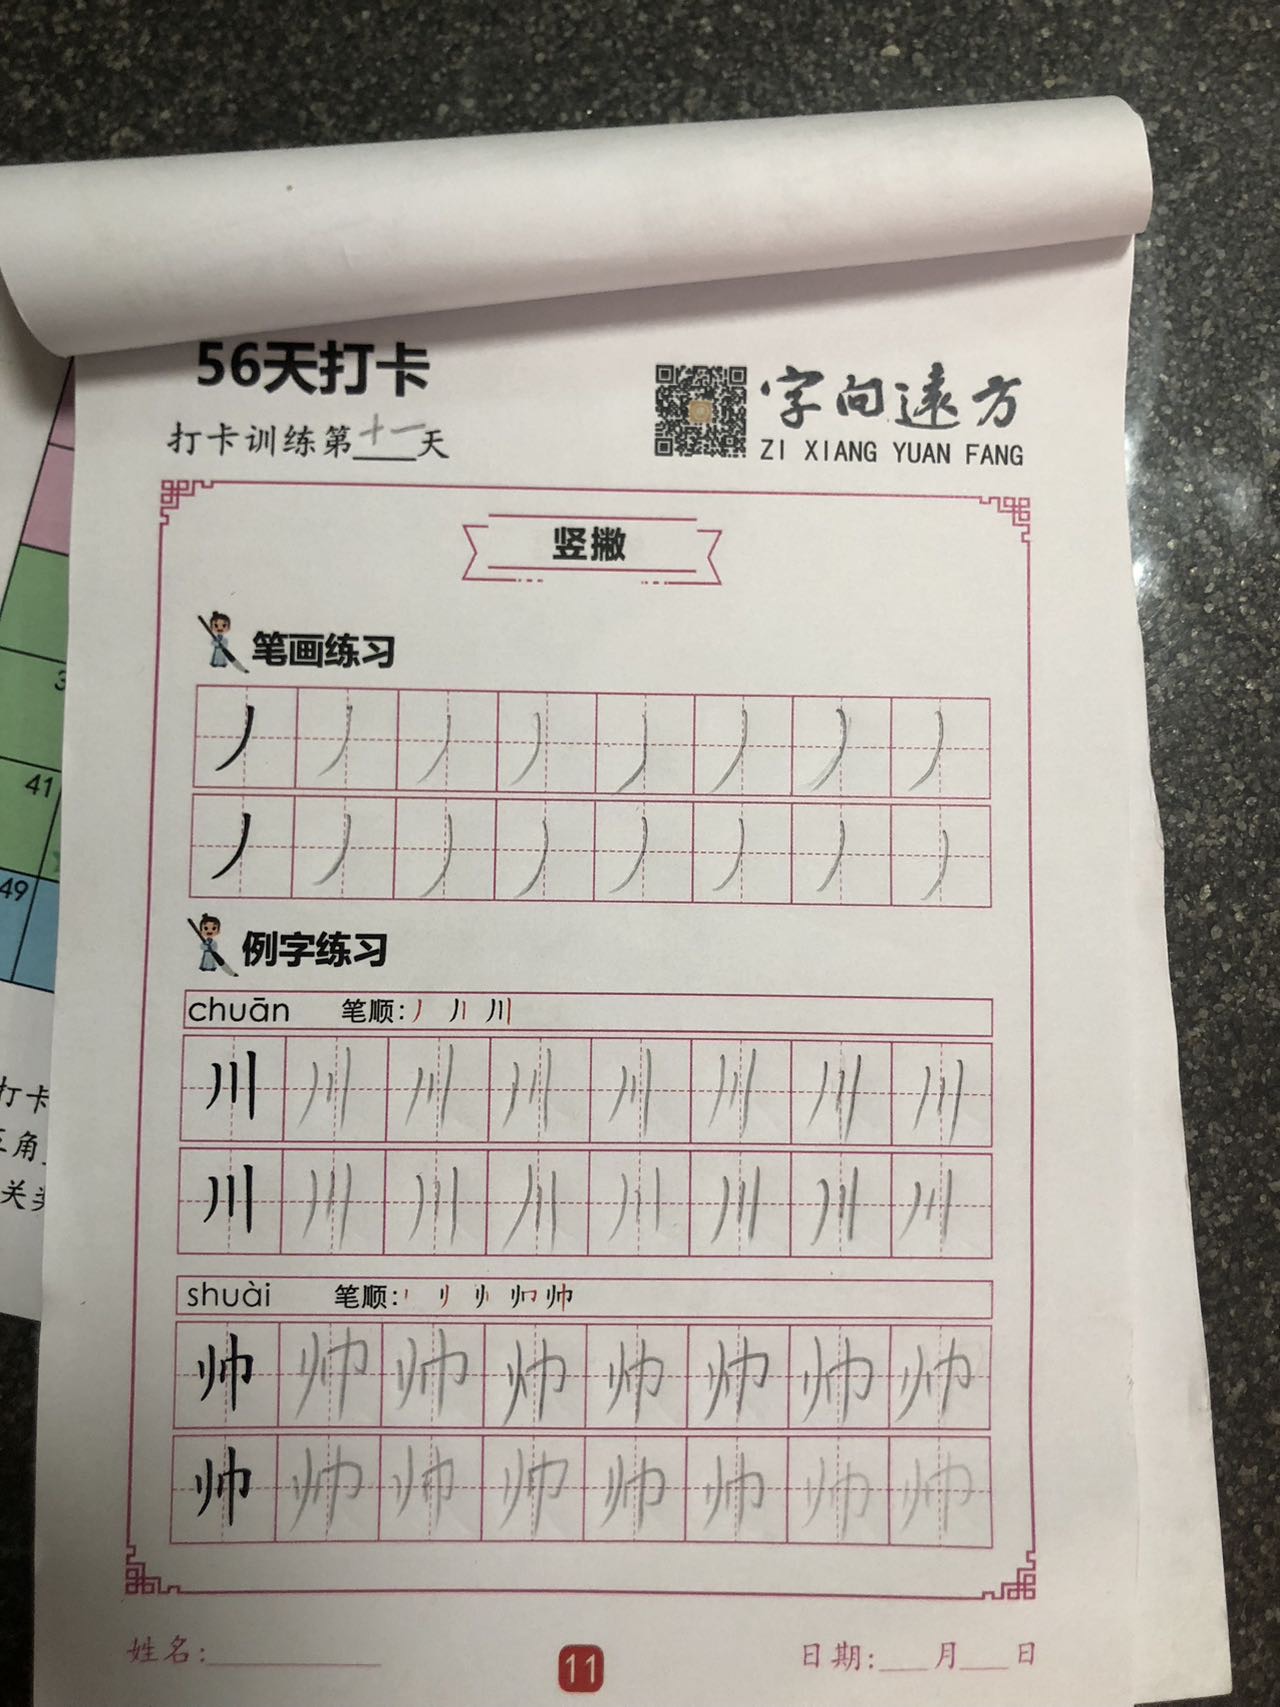 56天打卡
打卡训练第十一天
字向遠方
ZI XIANG YUAN FANG
竖撇
笔画练习
丿 丿 丿 丿 丿 丿 丿 丿
丿 丿 丿 丿 丿 丿 丿 丿
例字练习
chuān 笔顺: 丿 丿丨 川
川 川 川 川 川 川 川 川
川 川 川 川 川 川 川 川
shuài 笔顺: 帅
帅 帅 帅 帅 帅 帅 帅 帅
帅 帅 帅 帅 帅 帅 帅 帅
姓名:
11
日期: 月 日
41
49
打卡
角
关